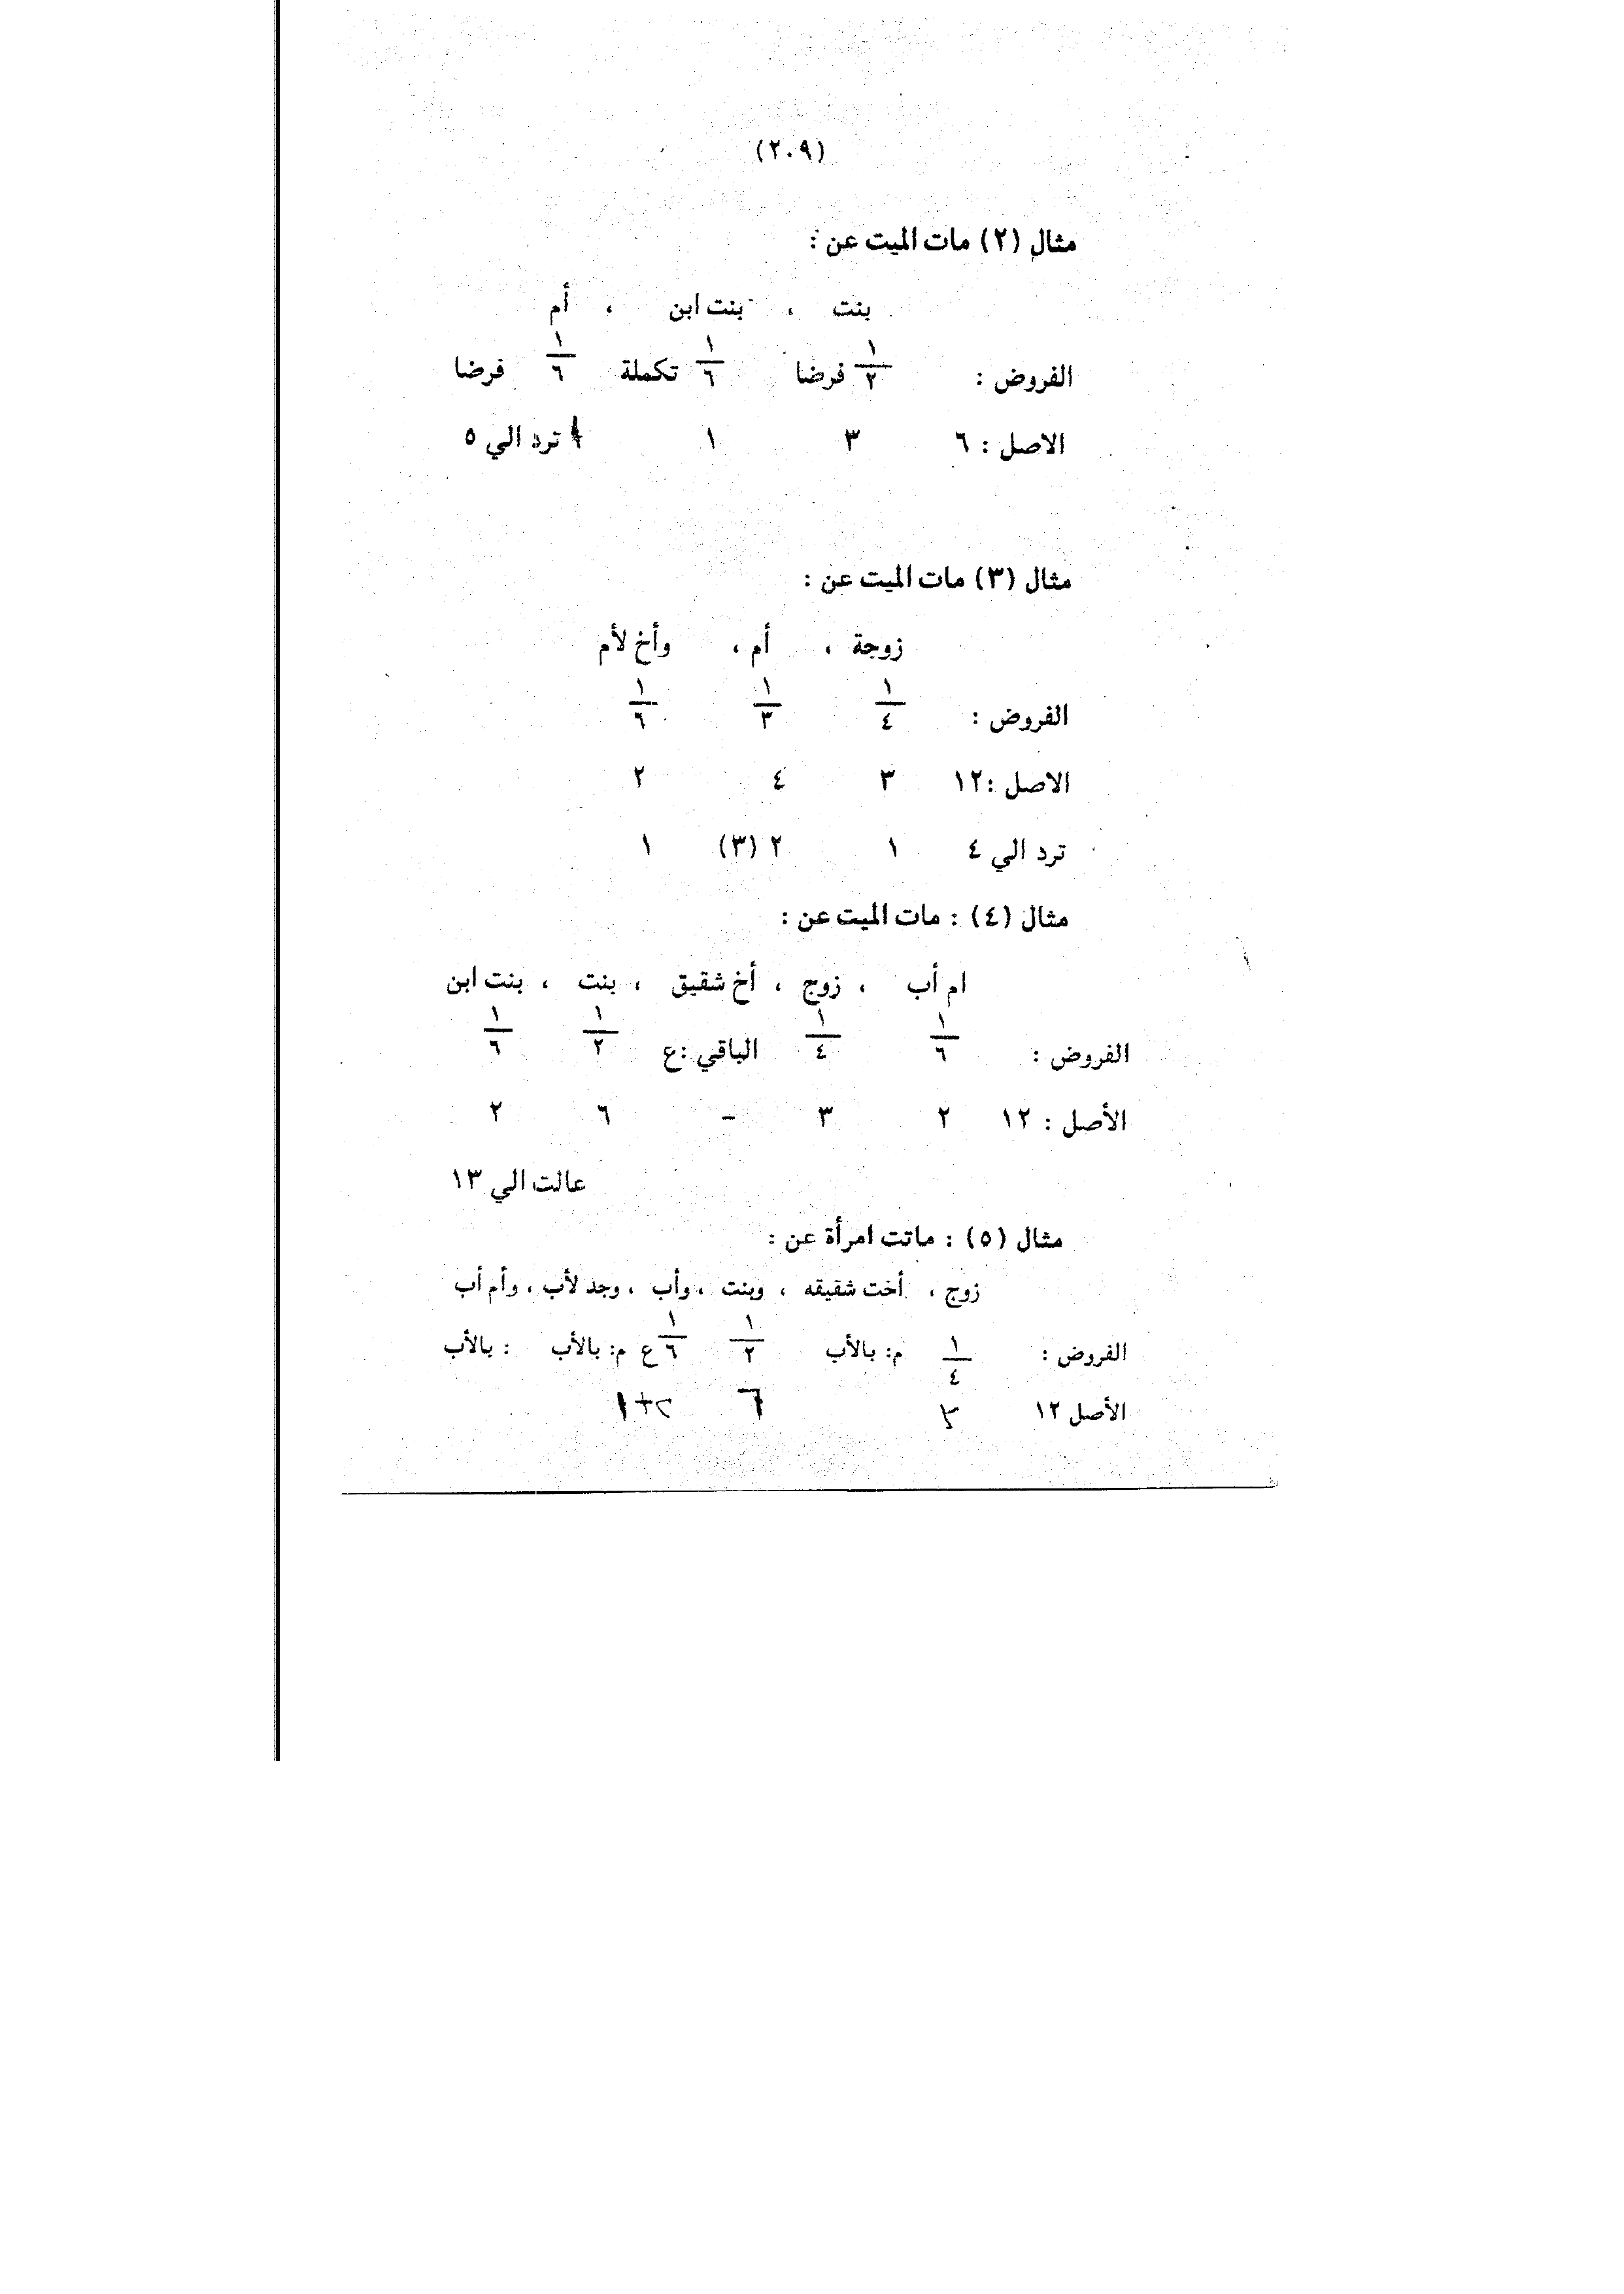 (٢٠٩)
مثال (٢) مات الميت عن :
بنت ، بنت ابن ، أم
الفروض : ١/٢ فرضا ١/٦ تكملة ١/٦ فرضا
الاصل : ٦ ٣ ١ ١ ترد الي ٥
مثال (٣) مات الميت عن :
زوجة ، أم ، وأخ لأم
الفروض : ١/٤ ١/٣ ١/٦
الاصل :١٢ ٣ ٤ ٢
ترد الي ٤ ١ ٢ (٣) ١
مثال (٤) : مات الميت عن :
ام أب ، زوج ، أخ شقيق ، بنت ، بنت ابن
الفروض : ١/٦ ١/٤ الباقي :ع ١/٢ ١/٦
الأصل : ١٢ ٢ ٣ – ٦ ٢
عالت الي ١٣
مثال (٥) : ماتت امرأة عن :
زوج ، أخت شقيقه ، وبنت ، وأب ، وجد لأب ، وأم أب
الفروض : ١/٤ م: بالأب ١/٢ ١/٦ ع م: بالأب : بالأب
الأصل ١٢ ٣ ٦ ٢+١